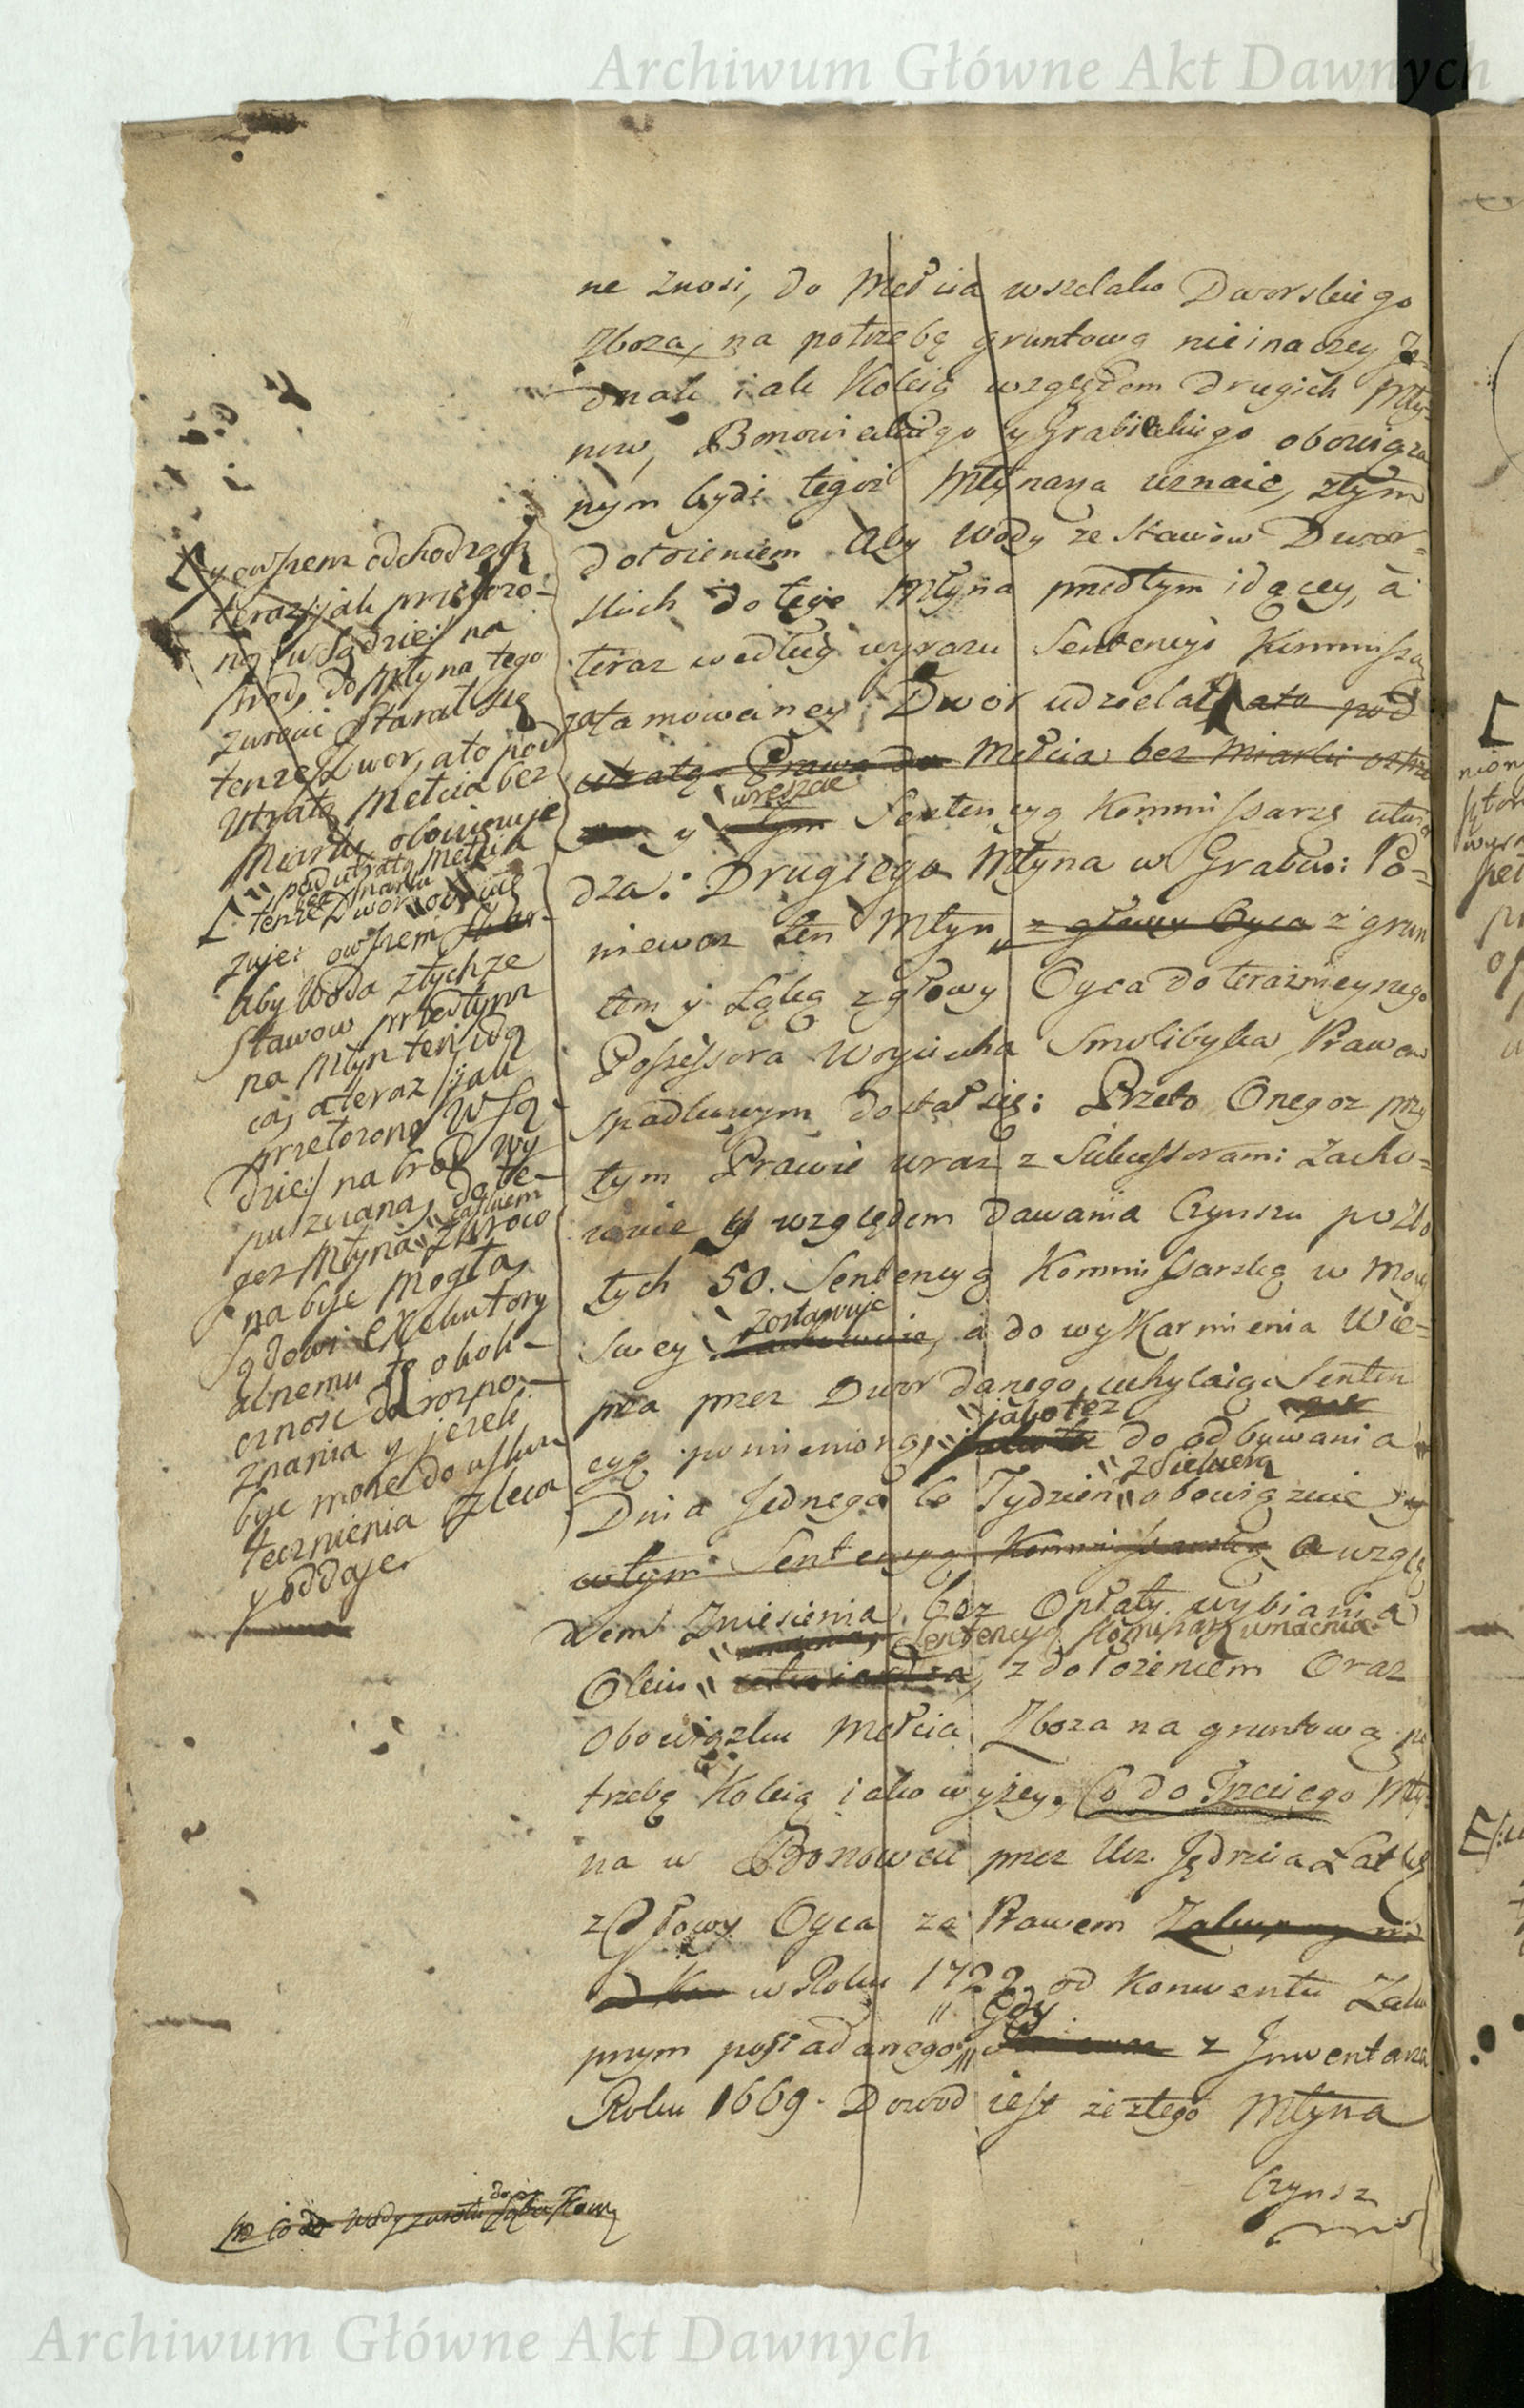 Archiwum Główne Akt Dawnych
ne znosi, do Mełcia wszelako Dworskiego
Zboza, na potrzebę gruntową nieinaczey Je-
dnak iak Koleią względem drugich Mły-
now, Bonowieckiego y Grabieckiego obowiąza
nym bydz tegoz Młynarza uznaie, ztym
dołożeniem Aby Wody ze Stawow Dwor-
skich do tego Młyna przedtym idącey, a
teraz według wyrazu Sentencyi Kommissar
zatamowaney Dwor udzielał ato pod
utratą Prawa do Mełcia bez Miarki
wreszcie
y Sentencyą Kommissarzs utwier
dza: Drugiego Młyna w Grabow: Po-
niewaz ten Młyn z głowy Oyca z grun
tem y Łąką z głowy Oyca do teraznieyszego
Possessora Woyciecha Smolibyka, Prawem
spadkowym dostał się: Przeto Onegoz przy
tym Prawie wraz z Sukcessorami Zacho-
wuie y względem dawania Czynszu po Zło
tych 50. Sentencyą Kommissarską w Mocy
zostawuie
swey, a do wyKarmienia Wie-
prza przez Dwor danego, uchylaiąc Senten
jako tez
cyą pomienioną, do odbywania
z Siekierą
Dnia Jednego co Tydzien obowiązuie
wtym Sentencyą Kommissarską a wzglę
dem Zniesienia bez Opłaty wybiania
Sentencyą Komisarz umacnia
Oleiu utwierdza, z dołożeniem Oraz
Obowiązku Mełcia Zboza na gruntową po
trzebę Koleią iako wyżey. Co do Trzeciego Mły
na w Bonowcu przez Ucz. Jędrzeia Łatkę
z Głowy Oyca za Prawem
w Roku 1722. od Konwentu Zaku
Gdy
pnym posiadanego, z Inwentarza
Roku 1669. Dowod iest ze ztego Młyna
Czynsz
y owszem odchodzącą
teraz /: jak przełożo-
no w Sądzie :/ na
brod, do Młyna tego
zwrocić Starał się
tenze Dwor, ato pod
Utratą Mełcia bez
Miarki, obowiązuje
pod utratą Mełcia
bez Miarki
tenze Dwor obowią
zuje: owszem
Aby Woda ztychze
Stawow przedtym
na Młyn ten idą
ca, a teraz /: jak
przełozono W Są
dzie :/ na brod wy
puszczana, do te-
goz Młyna zwroco
na byc mogła,
Sądowi exekutory
alnemu tę okoli-
cznosc do rozpo-
znania y jezeli
byc moze do usku
tecznienia zleca
y oddaje.
Co do Wody zwrotu
Archiwum Główne Akt Dawnych